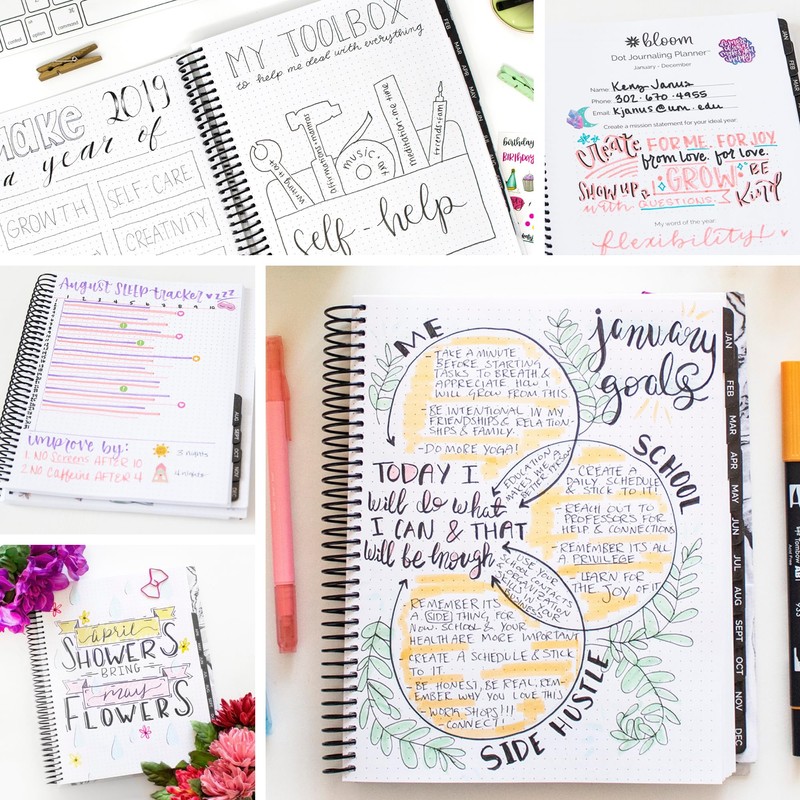 Make 2019
a year of
GROWTH
SELF-CARE
CREATIVITY
MY TOOLBOX
to help me deal with everything
writing it out
affirmations + mantras
music + art
meditation + me time
friends + fam
self-help
FEB
MAR
APR
MAY
JUN
birthday
BIRTHDAY
bloom
Dot Journaling Planner™
January - December
Name: Keny Janus
Phone: 302·670·4955
Email: Kjanus@um.edu
Create a mission statement for your ideal year:
Create FOR ME. FOR JOY.
from love. for love.
SHOW UP & GROW. BE
with QUESTIONS. Kind
My word of the year
flexibility!
JAN
FEB
MAR
August SLEEP tracker zzz
1 2 3 4 5 6 7 8 9 10
improve by:
1. NO Screens AFTER 10
2. NO Caffeine AFTER 4
3 nights
AUG
SEPT
OCT
NOV
april
SHOWERS
BRING
may
FLOWERS
january
goals
ME
- TAKE A MINUTE
BEFORE STARTING
TASKS TO BREATH &
APPRECIATE HOW I
WILL GROW FROM THIS.
- BE INTENTIONAL IN MY
FRIENDSHIPS & RELATION-
SHIPS & FAMILY.
- DO MORE YOGA!
EDUCATION
MAKES ME A
BETTER PERSON
SCHOOL
- CREATE A
DAILY SCHEDULE
& STICK TO IT!
- REACH OUT TO
PROFESSORS FOR
HELP & CONNECTIONS
- REMEMBER ITS ALL
A PRIVILEGE
- LEARN FOR
THE JOY OF IT
TODAY I
will do what
I CAN & THAT
will be enough
USE YOUR
SCHOOL CONTACTS
& ORGANIZATION
SKILLS IN YOUR
BUSINESS
- REMEMBER ITS
A SIDE THING FOR
NOW. SCHOOL & YOUR
HEALTH ARE MORE IMPORTANT
- CREATE A SCHEDULE & STICK
TO IT.
- BE HONEST, BE REAL, REM-
EMBER WHY YOU LOVE THIS
- WORK SHOPS!!!
- CONNECT!
SIDE HUSTLE
JAN
FEB
MAR
APR
MAY
JUN
JUL
AUG
SEPT
OCT
NOV
DEC
Tombow